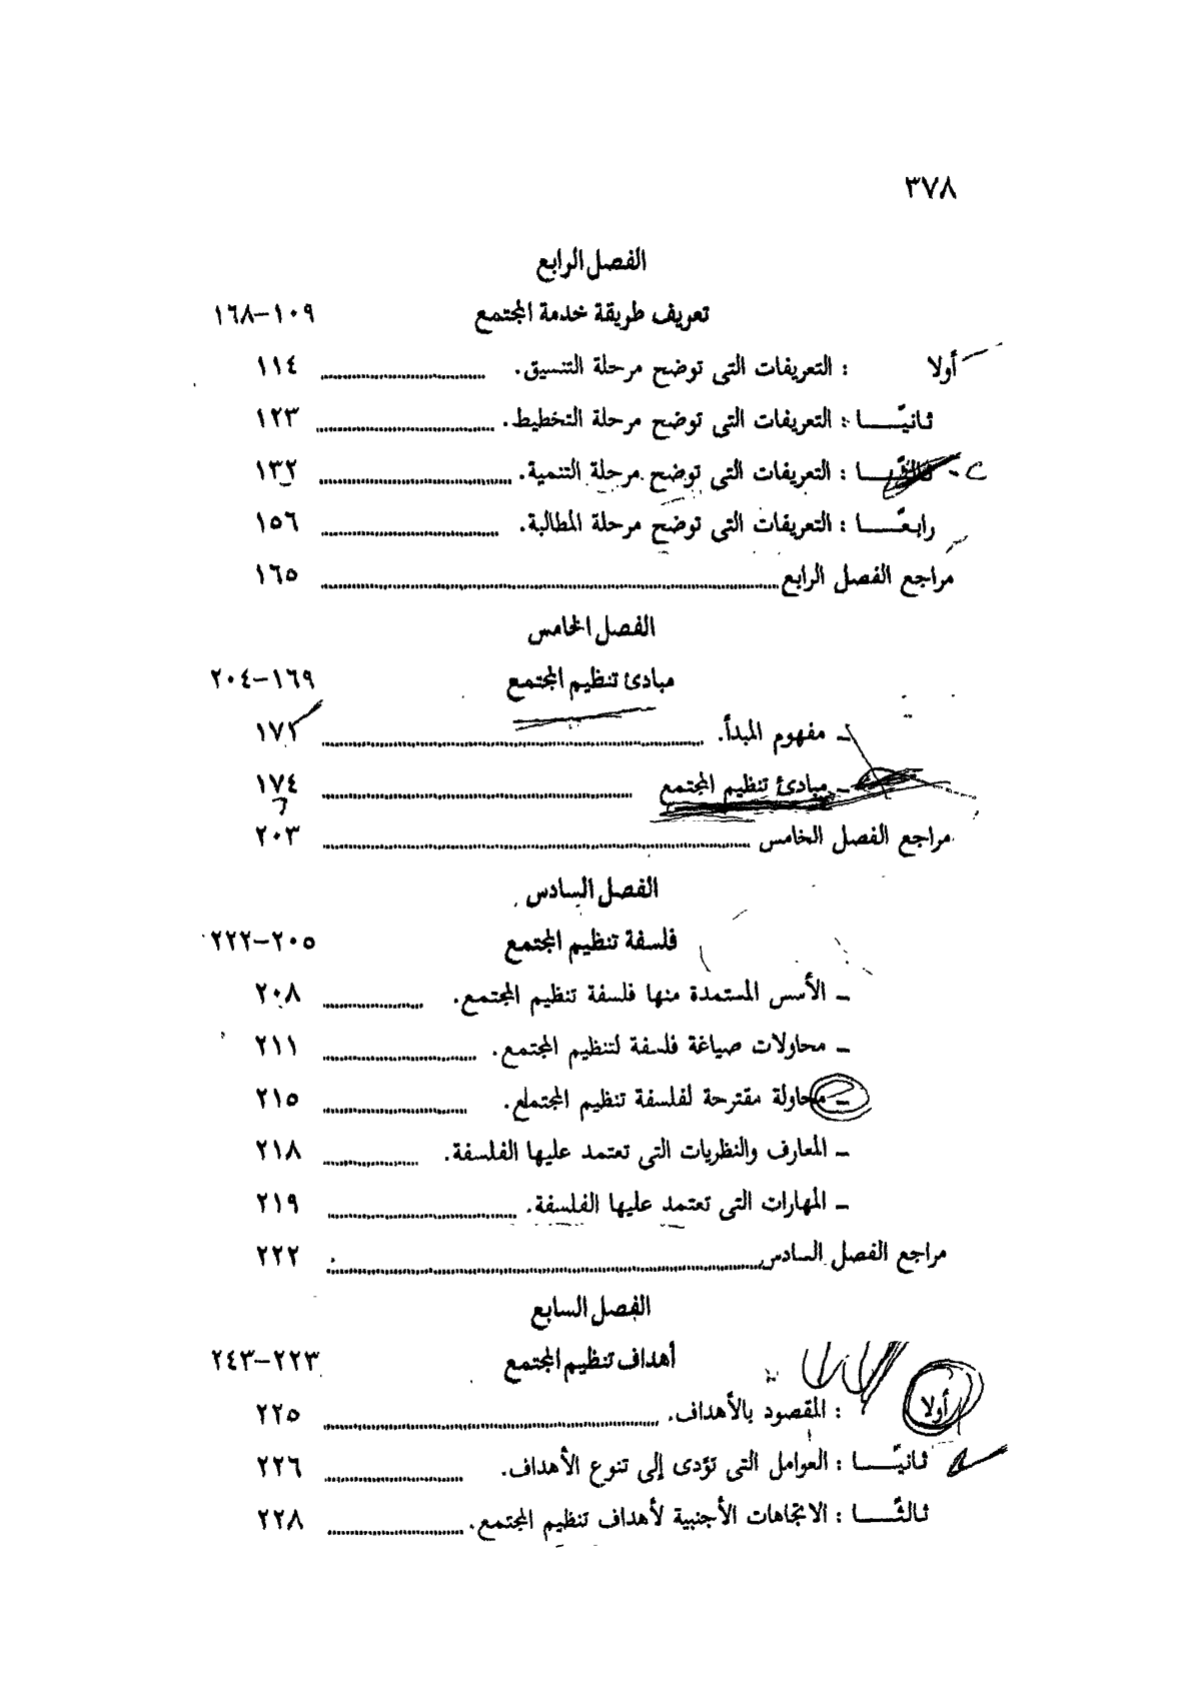 ٣٧٨
الفصل الرابع
تعريف طريقة خدمة المجتمع ١٠٩-١٦٨
أولا : التعريفات التى توضح مرحلة التنسيق. ١١٤
ثانيًا : التعريفات التى توضح مرحلة التخطيط. ١٢٣
ثالثًا : التعريفات التى توضح مرحلة التنمية. ١٣٢
رابعًا : التعريفات التى توضح مرحلة المطالبة. ١٥٦
مراجع الفصل الرابع ١٦٥
الفصل الخامس
مبادئ تنظيم المجتمع ١٦٩-٢٠٤
ـ مفهوم المبدأ. ١٧٢
ـ مبادئ تنظيم المجتمع ١٧٤
مراجع الفصل الخامس ٢٠٣
الفصل السادس
فلسفة تنظيم المجتمع ٢٠٥-٢٢٢
ـ الأسس المستمدة منها فلسفة تنظيم المجتمع. ٢٠٨
ـ محاولات صياغة فلسفة لتنظيم المجتمع. ٢١١
ـ محاولة مقترحة لفلسفة تنظيم المجتمع. ٢١٥
ـ المعارف والنظريات التى تعتمد عليها الفلسفة. ٢١٨
ـ المهارات التى تعتمد عليها الفلسفة. ٢١٩
مراجع الفصل السادس ٢٢٢
الفصل السابع
أهداف تنظيم المجتمع ٢٢٣-٢٤٣
أولا : المقصود بالأهداف. ٢٢٥
ثانيًا : العوامل التى تؤدى إلى تنوع الأهداف. ٢٢٦
ثالثًا : الاتجاهات الأجنبية لأهداف تنظيم المجتمع. ٢٢٨